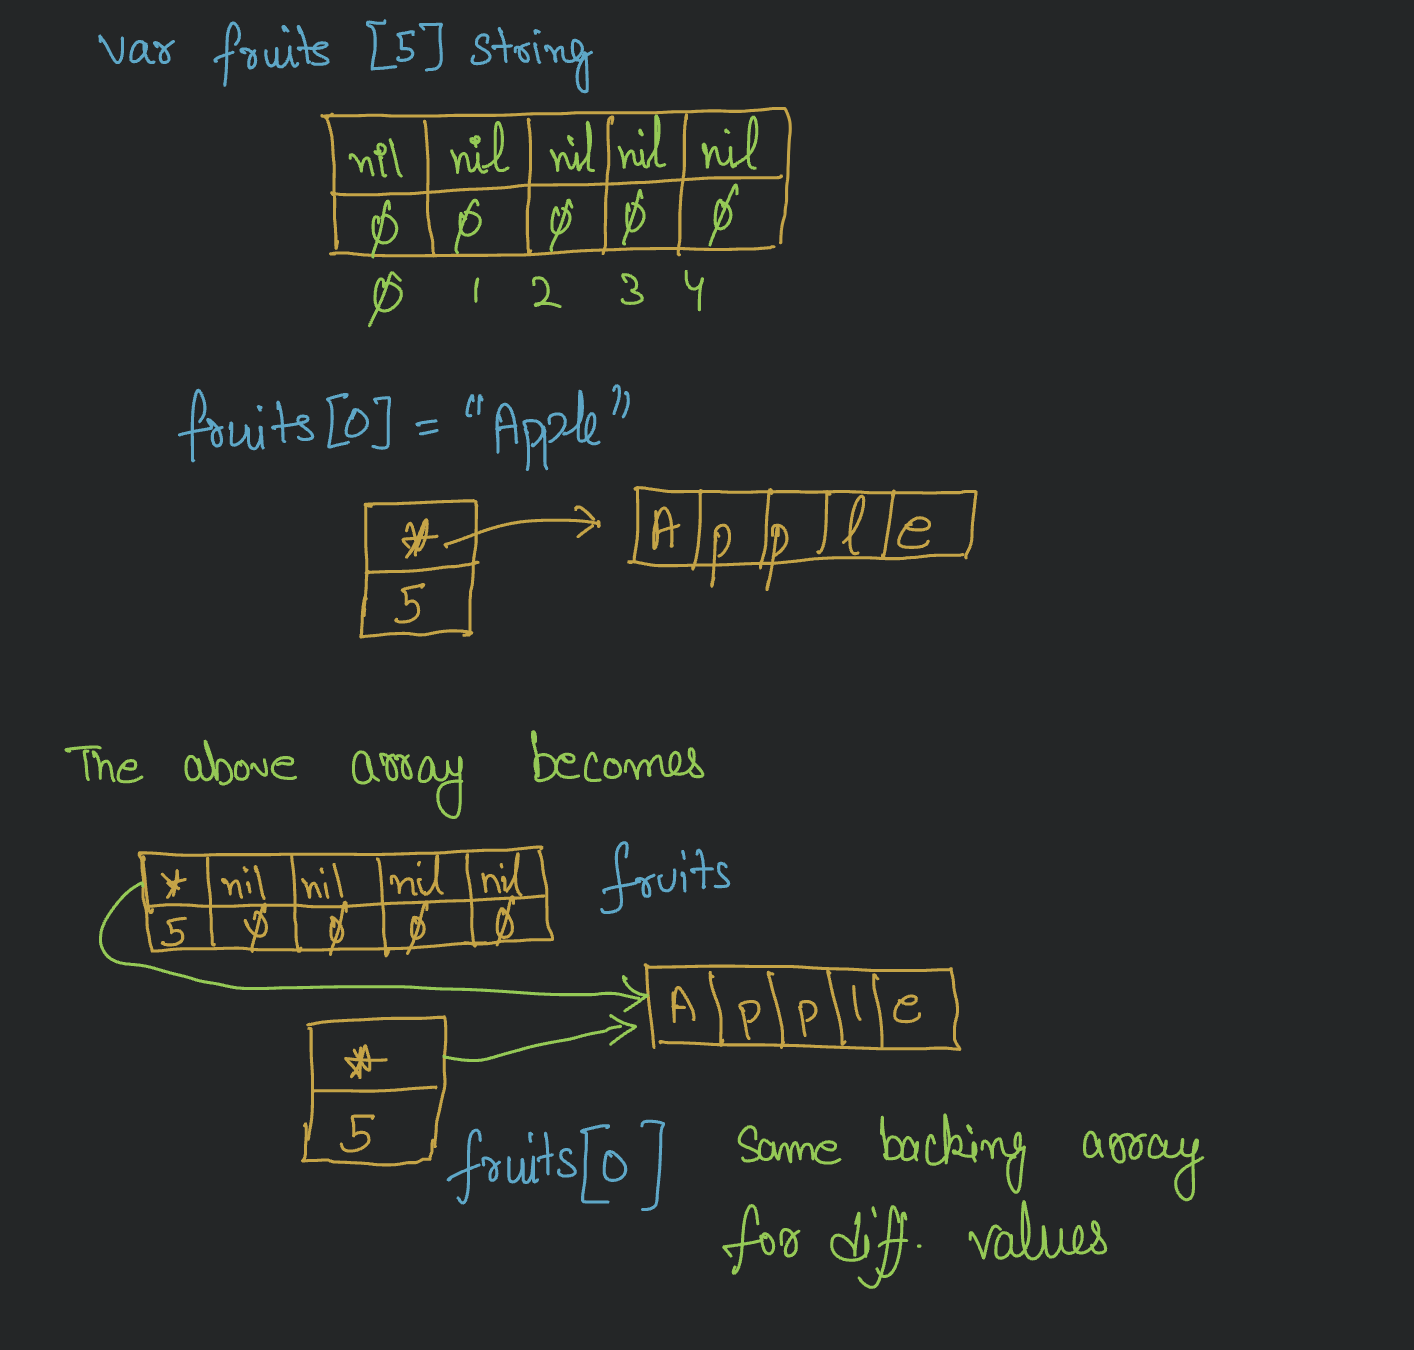 var fruits [5] string
nil nil nil nil nil
0 0 0 0 0
0 1 2 3 4
fruits[0] = "Apple"
* A p p l e
5
The above array becomes
* nil nil nil nil fruits
5 0 0 0 0
A p p l e
*
5
fruits[0]
Same backing array
for diff. values